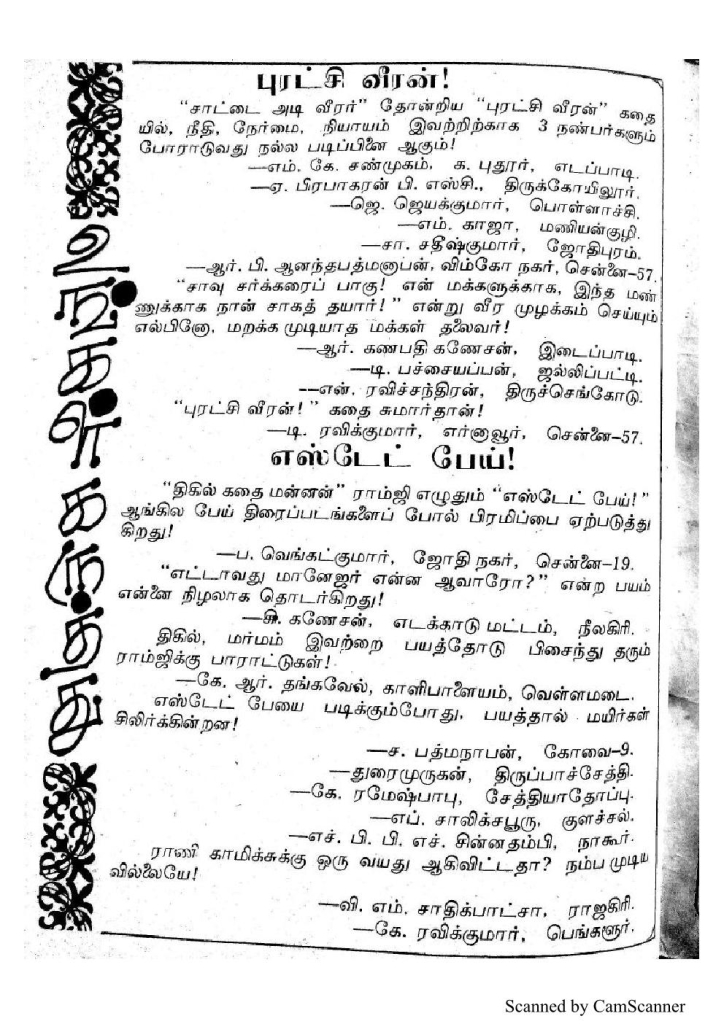 உங்கள் கருத்து
புரட்சி வீரன்!
"சாட்டை அடி வீரர்" தோன்றிய "புரட்சி வீரன்" கதை
யில், நீதி, நேர்மை, நியாயம் இவற்றிற்காக 3 நண்பர்களும்
போராடுவது நல்ல படிப்பினை ஆகும்!
—எம். கே. சண்முகம், க. புதூர், எடப்பாடி.
—ஏ. பிரபாகரன் பி. எஸ்சி., திருக்கோயிலூர்.
—ஜெ. ஜெயக்குமார், பொள்ளாச்சி.
—எம். காஜா, மணியன்குழி.
—சா. சதீஷ்குமார், ஜோதிபுரம்.
—ஆர். பி. ஆனந்தபத்மனாபன், விம்கோ நகர், சென்னை-57.
"சாவு சர்க்கரைப் பாகு! என் மக்களுக்காக, இந்த மண்
ணுக்காக நான் சாகத் தயார்!" என்று வீர முழக்கம் செய்யும்
எல்பினோ, மறக்க முடியாத மக்கள் தலைவர்!
—ஆர். கணபதி கணேசன், இடைப்பாடி.
—டி. பச்சையப்பன், ஜல்லிப்பட்டி.
--என். ரவிச்சந்திரன், திருச்செங்கோடு.
"புரட்சி வீரன்!" கதை சுமார்தான்!
—டி. ரவிக்குமார், எர்னாவூர், சென்னை-57.
எஸ்டேட் பேய்!
"திகில் கதை மன்னன்" ராம்ஜி எழுதும் "எஸ்டேட் பேய்!"
ஆங்கில பேய் திரைப்படங்களைப் போல் பிரமிப்பை ஏற்படுத்து
கிறது!
—ப. வெங்கட்குமார், ஜோதி நகர், சென்னை-19.
"எட்டாவது மானேஜர் என்ன ஆவாரோ?" என்ற பயம்
என்னை நிழலாக தொடர்கிறது!
—கி. கணேசன், எடக்காடு மட்டம், நீலகிரி.
திகில், மர்மம் இவற்றை பயத்தோடு பிசைந்து தரும்
ராம்ஜிக்கு பாராட்டுகள்!
—கே. ஆர். தங்கவேல், காளிபாளையம், வெள்ளமடை.
எஸ்டேட் பேயை படிக்கும்போது, பயத்தால் மயிர்கள்
சிலிர்க்கின்றன!
—ச. பத்மநாபன், கோவை-9.
—துரைமுருகன், திருப்பாச்சேத்தி.
—கே. ரமேஷ்பாபு, சேத்தியாதோப்பு.
—எப். சாலிக்சபூரு, குளச்சல்.
—எச். பி. பி. எச். சின்னதம்பி, நாகூர்.
ராணி காமிக்சுக்கு ஒரு வயது ஆகிவிட்டதா? நம்ப முடிய
வில்லையே!
—வி. எம். சாதிக்பாட்சா, ராஜகிரி.
—கே. ரவிக்குமார், பெங்களூர்.
Scanned by CamScanner